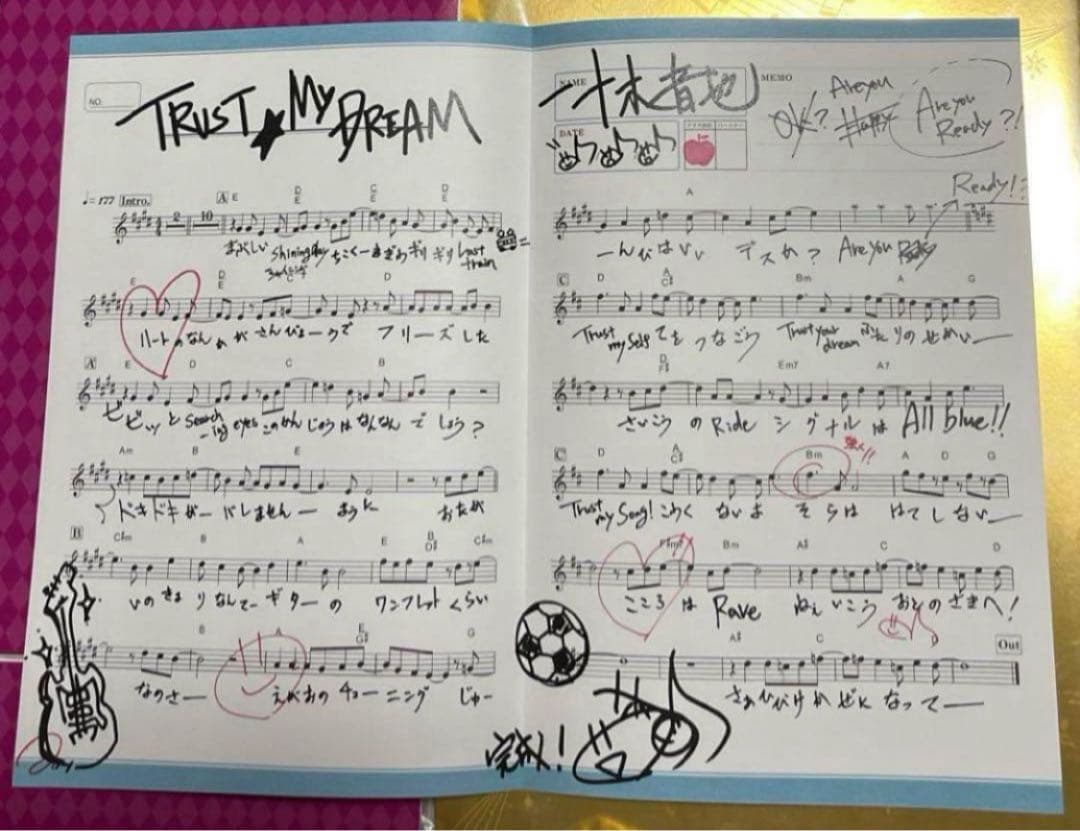 TRUST★MY DREAM
NO.
♩=177 Intro.
2 10
A E D/E C/E D/E
まぶしい Shining day ちこくーまぎわ ギリギリ Last train
E D/E C D
ハートのなんかが さんびょーうで フリーズした
A' E D C B
ビビッと Searching eyes このかんじょうはなんなんでしょう?
Am B E
ドキドキがーバレませんーように おたが
B C#m B A E B/D# C#m
いのきょりなんてーギターの ワンフレットくらい
B A E/G# G
なのさー えがおのチューニング じゅー
NAME 一十木音也
DATE
MEMO
OK? Are you Happy
Are you Ready?!
Ready!?
A
ーんびはいいデスか? Are you Ready
C D A/C# Bm A G
Trust my Self てをつなごう Trust your dream ふたりのせかいー
D/F# Em7 A7
さいこうの Ride シグナルは All blue!!
C D A/C# Bm A D G
Trust my Song! こわくないよ そらは はてしないー
F#m7 Bm A# C D
こころは Rave ねえいこう おとのさきへ!
A# C Out
さあひびけかぜになってー
完成!